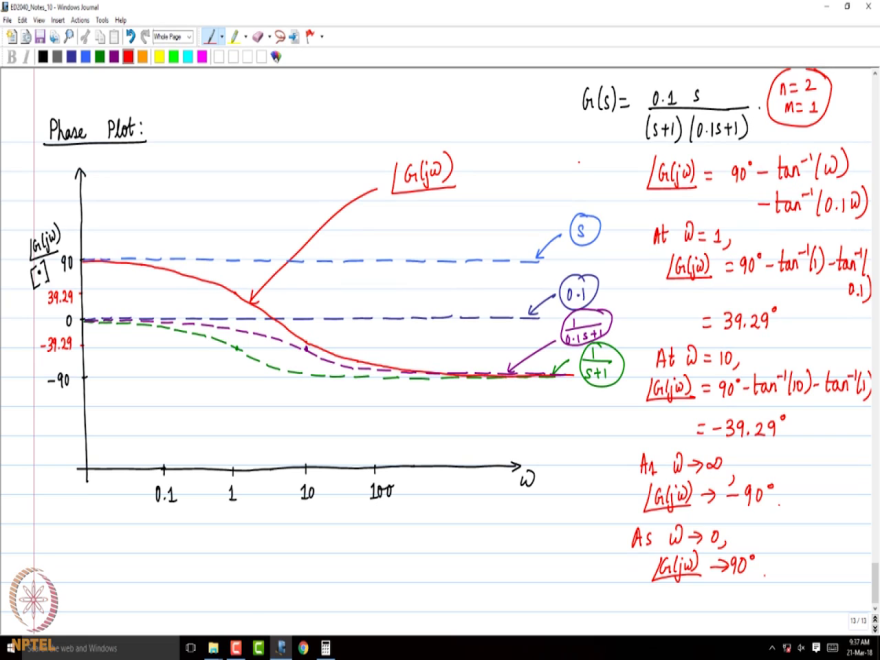 ED2040_Notes_10 - Windows Journal
File Edit View Insert Actions Tools Help
Whole Page
B I
Phase Plot:
G(s) = 0.1 s
(s+1) (0.1s+1) .
n = 2
m = 1
∠G(jω)
∠G(jω)
[°]
90
39.29
0
-39.29
-90
0.1
1
10
100
ω
s
0.1
1
0.1s+1
1
s+1
∠G(jω) = 90° - tan⁻¹(ω)
- tan⁻¹(0.1ω)
At ω = 1,
∠G(jω) = 90° - tan⁻¹(1) - tan⁻¹(
0.1)
= 39.29°
At ω = 10,
∠G(jω) = 90° - tan⁻¹(10) - tan⁻¹(1)
= -39.29°
As ω → ∞,
∠G(jω) → -90°.
As ω → 0,
∠G(jω) → 90°.
13 / 13
NPTEL
the web and Windows
9:37 AM
21-Mar-18